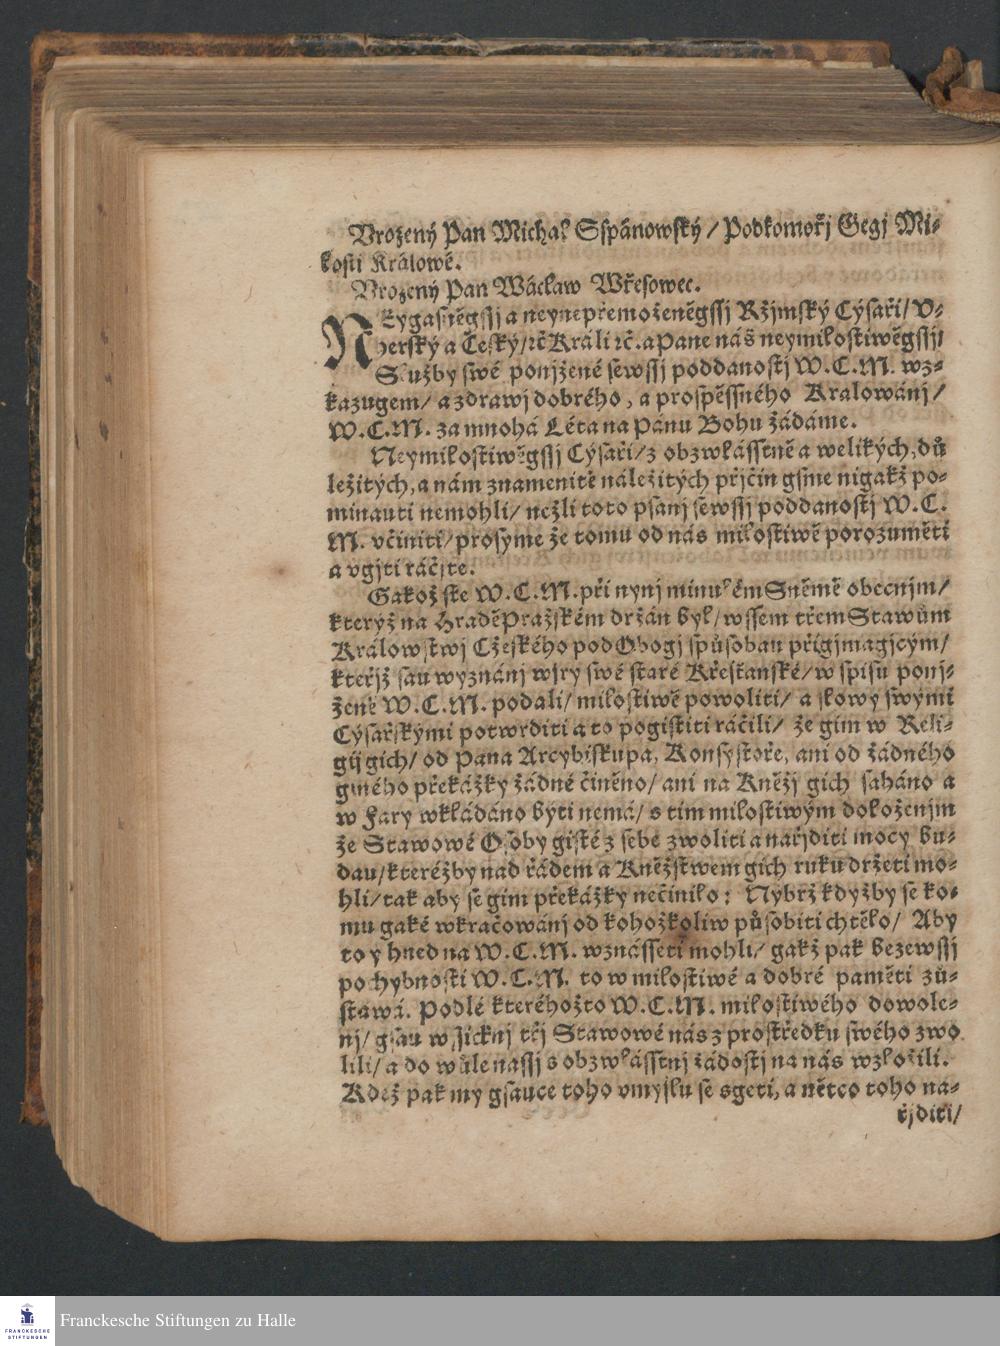 Vrozený Pan Michal Sspánowský / Podkomořj Gegj Mi-
losti Králowé.
Vrozený Pan Wácław Wřesowec.
NEygasněgssj a neyneprěmoženěgssj Ržjmský Cýsaři / V-
herský a Český / ꝛč Králi ꝛč. a Pane náš neymilostiwěgssj /
Služby swé ponjžené sewssj poddanostj W. C. M. wz-
kazugem / a zdrawj dobrého, a prospěssného Kralowánj /
W. C. M. za mnohá Léta na Pánu Bohu žádáme.
Neymilostiwěgssj Cýsaři / z obzwlásstně a welikých, dů
ležitých, a nám znamenitě náležitých přjčin gsme nigakž po-
minauti nemohli / nežli toto psanj sewssj poddanostj W. C.
M. včiniti / prosyme že tomu od nás milostiwě porozuměti
a vgjti ráčjte.
Gakož ste W. C. M. při nynj minulém Sněmě obecnjm /
kterýž na Hradě Pražském držán byl / wssem třem Stawům
Králowstwj Cžeského pod Obogj spůsobau přigjmagjcým /
kteřjž sau wyznánj wjry swé staré Křesťanské / w spisu ponj-
ženě W. C. M. podali / milostiwě powoliti / a slowy swými
Cýsařskými potwrditi a to pogistiti ráčili / že gim w Reli-
gij gich / od Pana Arcybiskupa, Konsystoře, ani od žádného
giného překážky žádné činěno / ani na Kněžj gich saháno a
w Fary wkládáno býti nemá / s tim milostiwým doloženjm
že Stawowé Osoby gisté z sebe zwoliti a nařjditi mocy bu-
dau / kteréžby nad řádem a Kněžstwem gich ruku držeti mo-
hli / tak aby se gim překážky nečinilo: Nýbrž kdyžby se ko-
mu gaké wkračowánj od kohožkoliw působiti chtělo / Aby
to y hned na W. C. M. wznásseti mohli / gakž pak bezewssj
pochybnosti W. C. M. to w milostiwé a dobré paměti zů-
stawá. Podlé kteréhožto W. C. M. milostiwého dowole-
nj / gsau wssickni třj Stawowé nás z prostředku swého zwo
lili / a do wůle nassj s obzwlásstnj žádostj na nás wzložili.
Kdež pak my gsauce toho vmyslu se sgeti, a nětco toho na-
řjditi /
Franckesche Stiftungen zu Halle
FRANCKESCHE
STIFTUNGEN